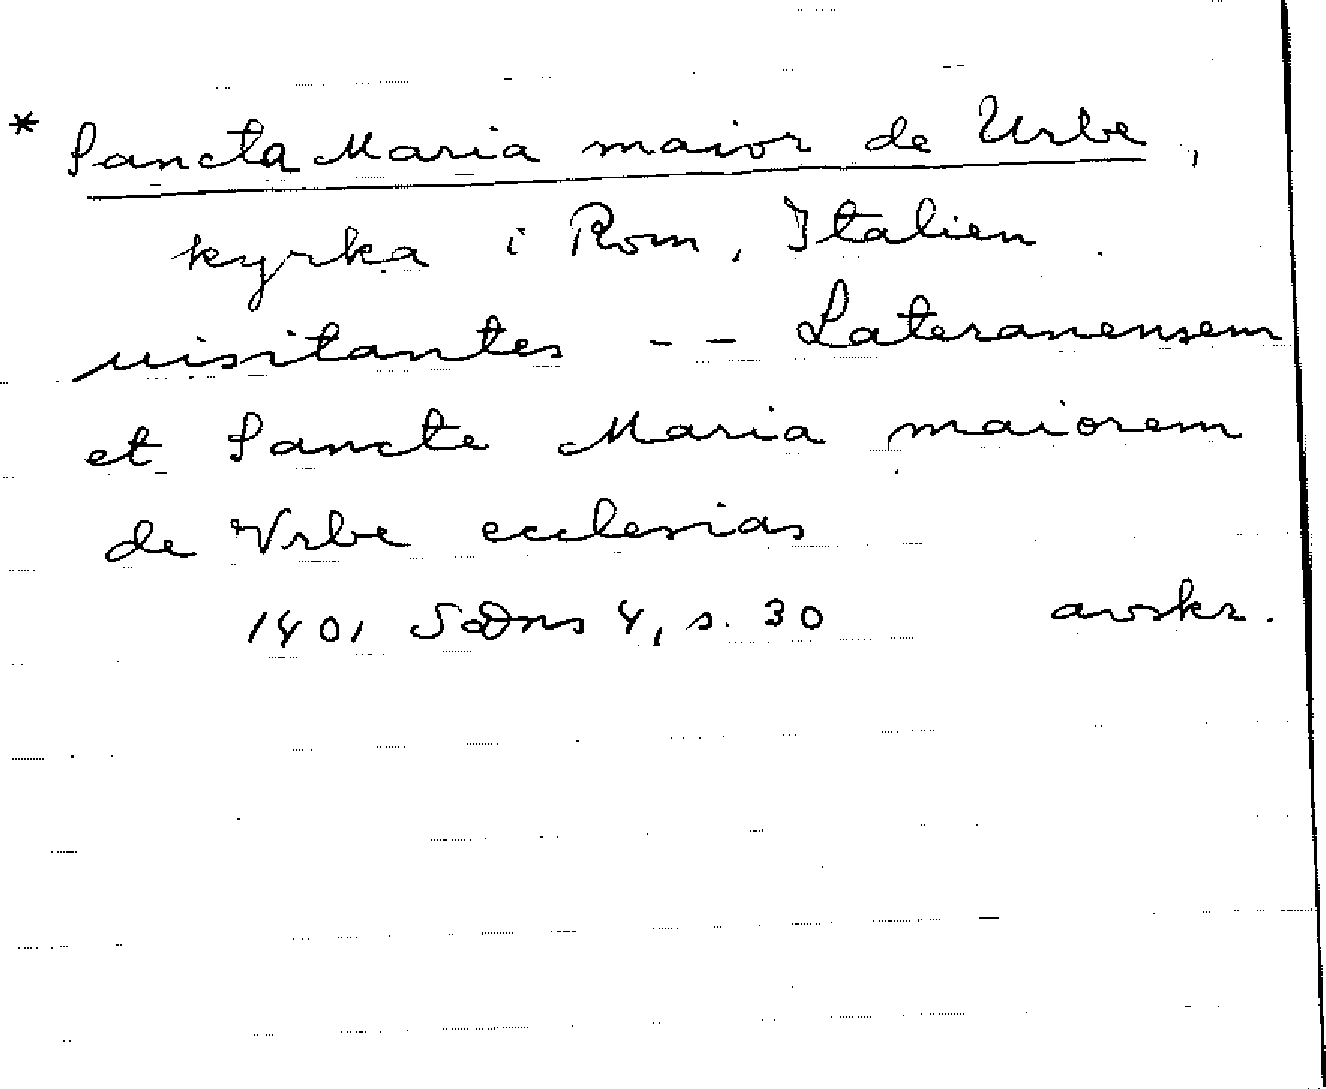 * Sancta Maria maior de Urbe,
kyrka i Rom, Italien.
uisitantes -- Lateranensem
et Sancte Maria maiorem
de Vrbe ecclesias
1401 SDns 4, s. 30 avskr.